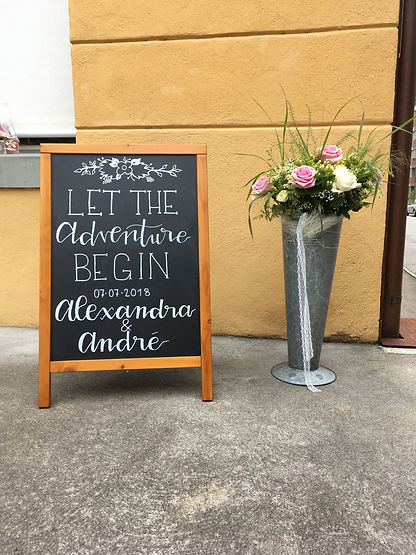 LET THE
Adventure
BEGIN
07·07·2018
Alexandra
&
André